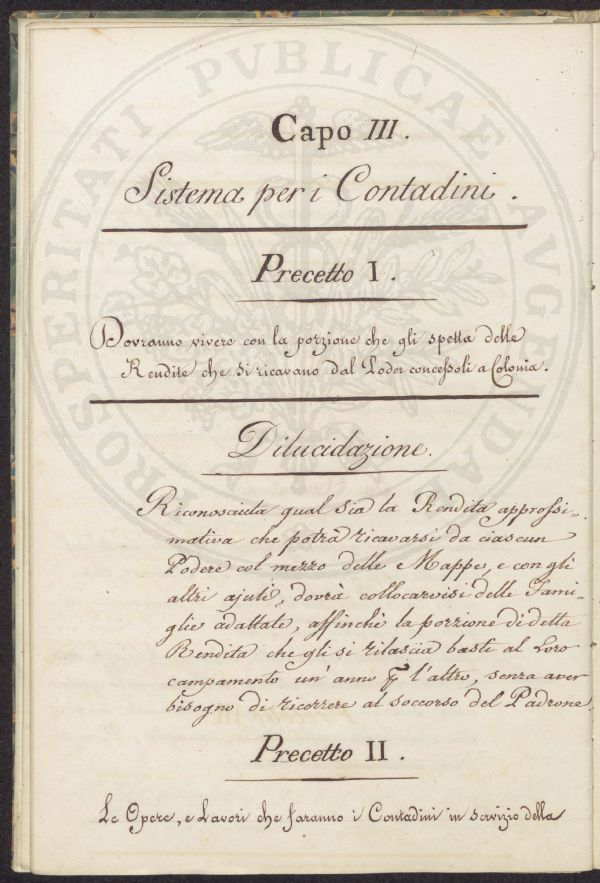 Capo III.
Sistema per i Contadini.
Precetto I.
Dovranno vivere con la porzione che gli spetta delle
Rendite che si ricavano dal Poder concessoli a Colonia.
Dilucidazione.
Riconosciuta qual sia la Rendita approssi-
mativa che potrà ricavarsi da ciascun
Podere col mezzo delle Mappe, e con gli
altri ajuti, dovrà collocarvisi delle Fami-
glie adattate, affinchè la porzione di detta
Rendita che gli si rilascia basti al Loro
campamento un' anno ꝑ l'altro, senza aver
bisogno di ricorrere al soccorso del Padrone
Precetto II.
Le Opere, e Lavori che faranno i Contadini in servizio della
PROSPERITATI PVBLICAE AVGENDAE